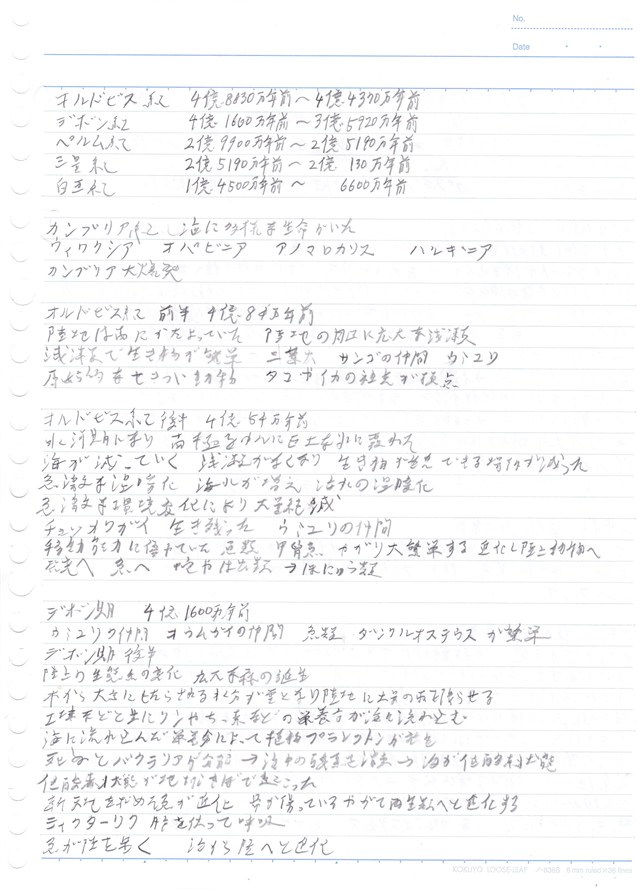 No.
Date
オルドビス紀 4億8830万年前〜4億4370万年前
デボン紀 4億1600万年前〜3億5920万年前
ペルム紀 2億9900万年前〜2億5190万年前
三畳紀 2億5190万年前〜2億130万年前
白亜紀 1億4500万年前〜6600万年前
カンブリア紀 海に多様な生命がいた
ウィワクシア オパビニア アノマロカリス ハルキニア
カンブリア大爆発
オルドビス紀 前半 4億8千万年前
陸地は南にかたよっていた 陸地の周辺に広大な浅瀬
浅瀬で生き物が繁栄 三葉虫 サンゴの仲間 ウミユリ
原始的なせきつい動物 タコやイカの祖先が頂点
オルドビス紀後半 4億5千万年前
氷河期になり 南極を中心に 氷に覆われ
海が減っていく 浅瀬がなくなり 生き物が生息できる場所が減った
急激な温暖化 海水が増え 海水の温暖化
急激な環境変化により大量絶滅
チョッカクガイ 生き残った ウミユリの仲間
移動能力に優れていた 魚類 甲冑魚 やがて大繁栄する 進化し陸上動物へ
魚へ は虫類→ほにゅう類
デボン期 4億1600万年前
ウミユリの仲間 オウムガイの仲間 魚類 ダンクルオステウスが繁栄
デボン期後半
陸上の生態系の変化 広大な森の誕生
木から大気にもたらされる水分が雲となり陸地に大量の雨を降らせる
土壌などと共にリンやちっ素などの栄養分が海に流れ込む
海に流れ込んだ栄養分によって植物プランクトンが
死ぬとバクテリアが分解→海中の酸素を消費→海が低酸素状態
低酸素状態が地球きぼで起こった
新天地を求め魚が進化 やがて両生類へと進化する
ティクターリク 肺を使って呼吸
魚が陸を歩く 海から陸へと進化
KOKUYO LOOSE-LEAF ノ-836B 6mm ruled×36 lines